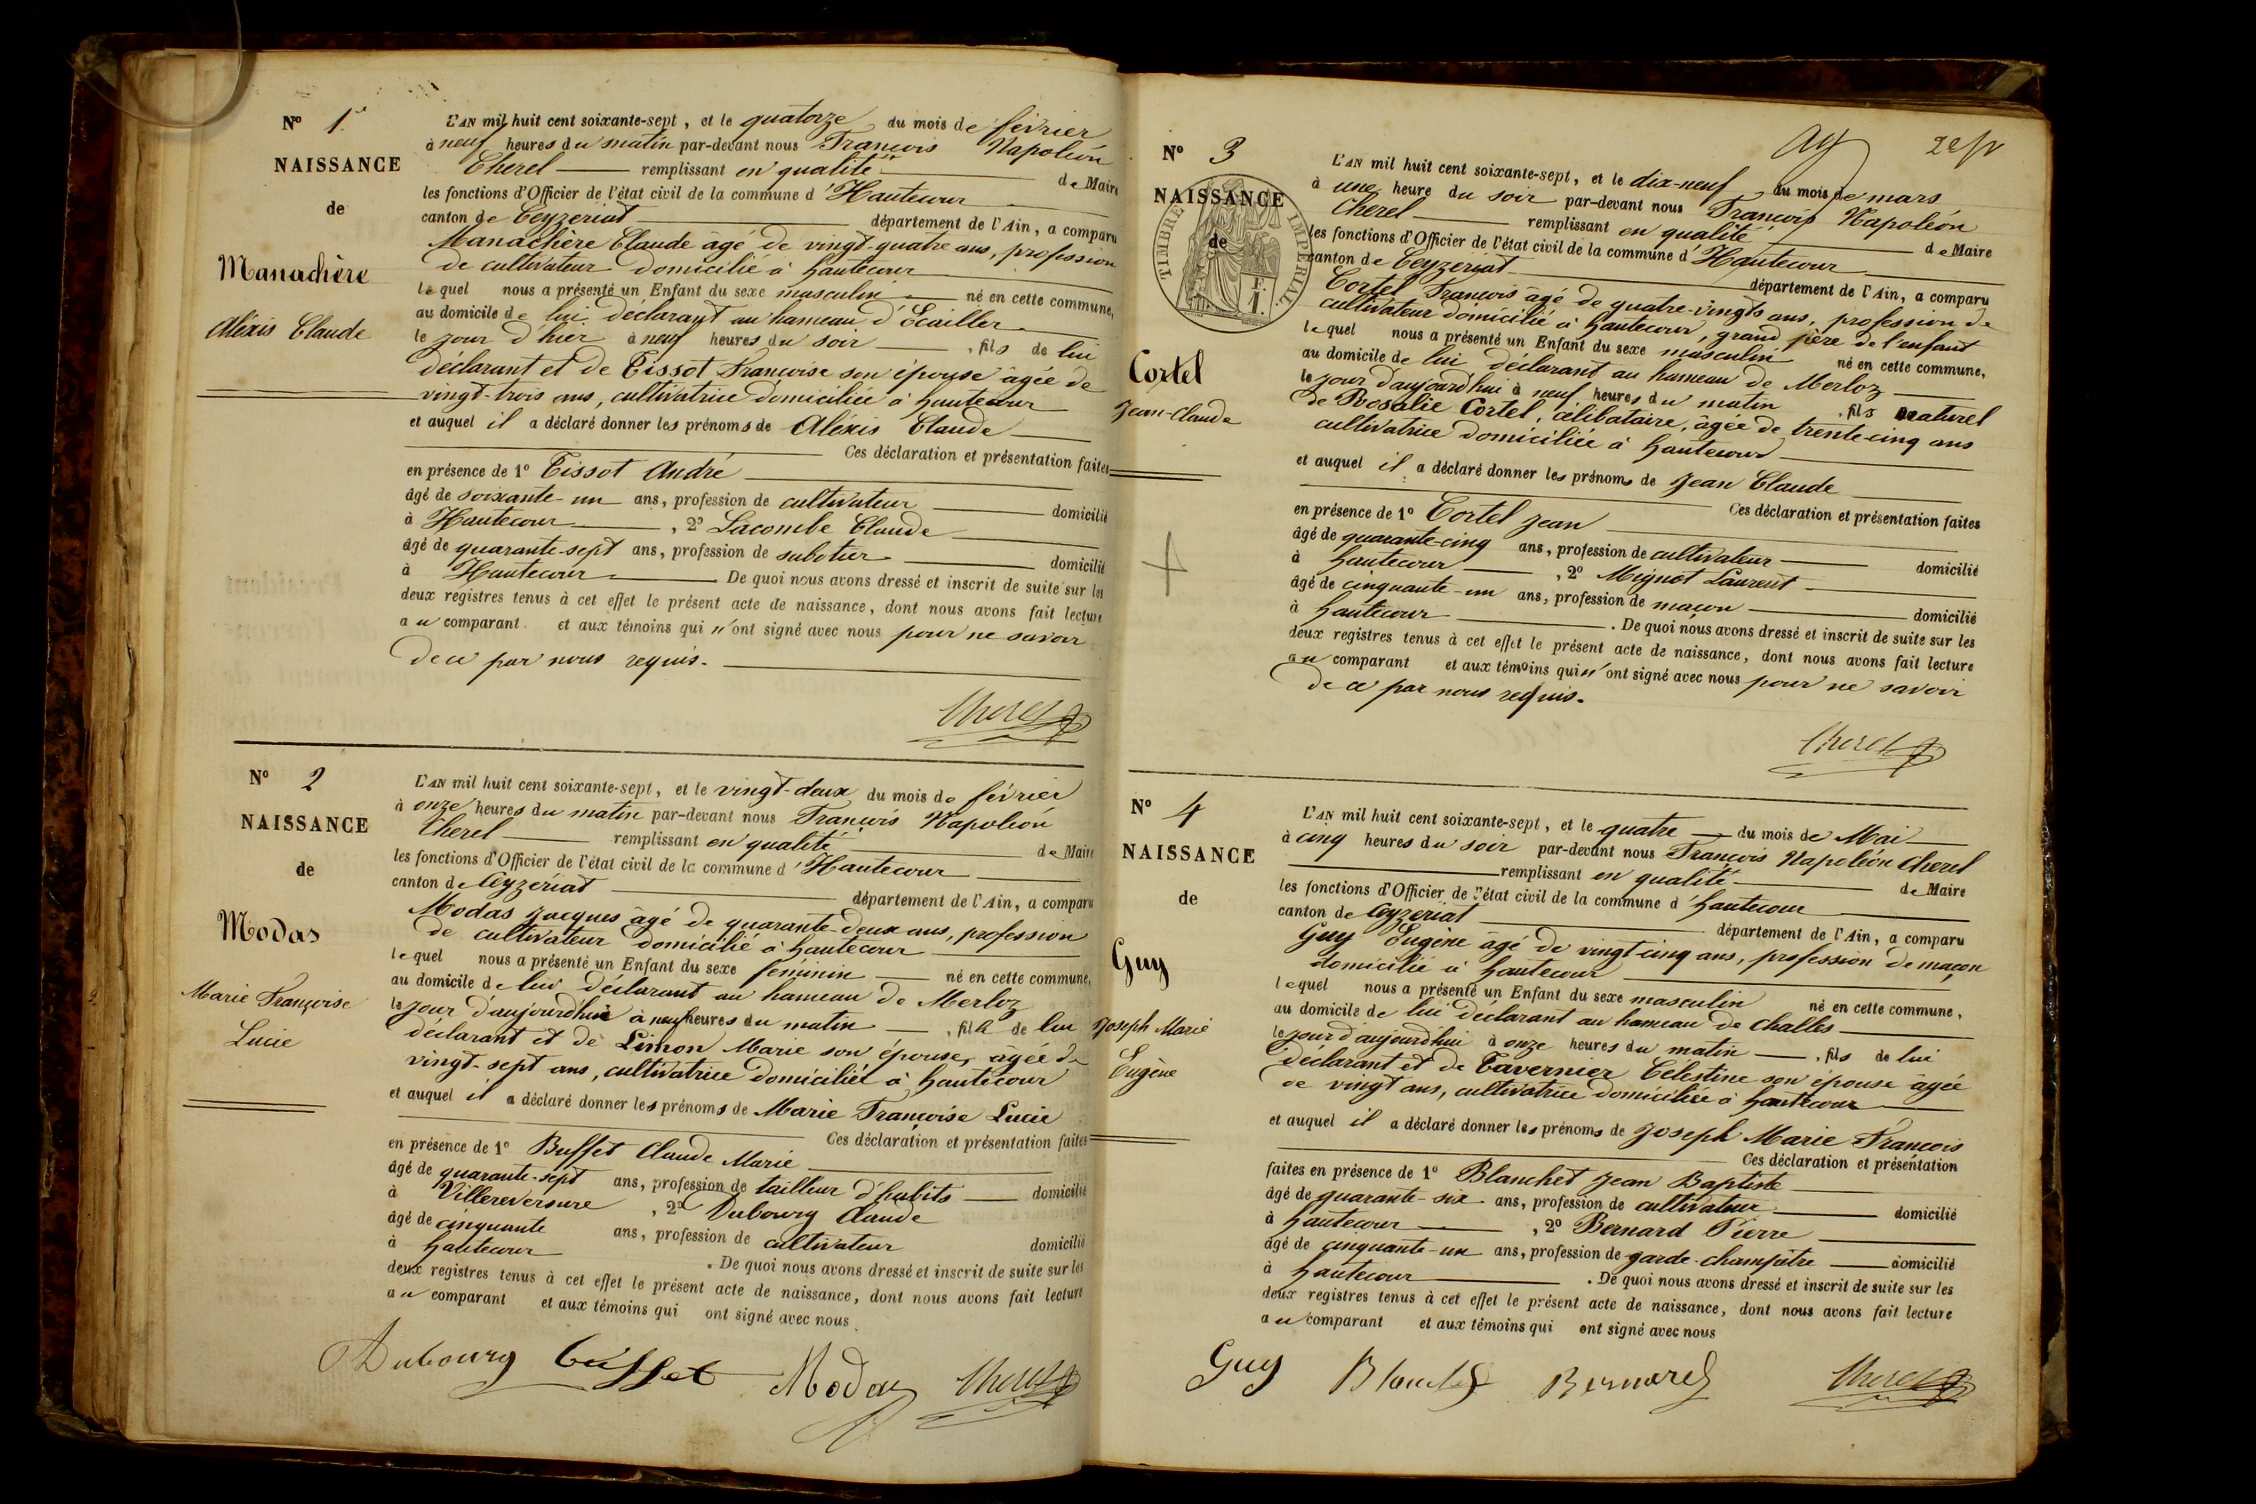 Nº 1er
NAISSANCE
de
Manachère
Aléxis Claude
L'AN mil huit cent soixante-sept, et le quatorze du mois de février
à neuf heures du matin par-devant nous François Napoléon
Cherel remplissant en qualité de Maire
les fonctions d'Officier de l'état civil de la commune d'Hautecour
canton de Ceyzeriat département de l'Ain, a comparu
Manachère Claude âgé de vingt-quatre ans, profession
de cultivateur domicilié à hautecour
lequel nous a présenté un Enfant du sexe masculin né en cette commune,
au domicile de lui déclarant au hameau d'Ecailler
le jour d'hier à neuf heures du soir, fils de lui
déclarant et de Tissot Françoise son épouse âgée de
vingt-trois ans, cultivatrice domiciliée à hautecour
et auquel il a déclaré donner les prénoms de Aléxis Claude
Ces déclaration et présentation faites
en présence de 1º Tissot André
âgé de soixante-un ans, profession de cultivateur domicilié
à Hautecour, 2º Lacombe Claude
âgé de quarante-sept ans, profession de sabotier domicilié
à Hautecour De quoi nous avons dressé et inscrit de suite sur les
deux registres tenus à cet effet le présent acte de naissance, dont nous avons fait lecture
au comparant et aux témoins qui n'ont signé avec nous pour ne savoir
de ce par nous requis.
Cherel
Nº 2
NAISSANCE
de
Modas
Marie Françoise
Lucie
L'AN mil huit cent soixante-sept, et le vingt-deux du mois de février
à onze heures du matin par-devant nous François Napoléon
Cherel remplissant en qualité de Maire
les fonctions d'Officier de l'état civil de la commune d'Hautecour
canton de Ceyzériat département de l'Ain, a comparu
Modas Jacques âgé de quarante-deux ans, profession
de cultivateur domicilié à hautecour
lequel nous a présenté un Enfant du sexe féminin né en cette commune,
au domicile de lui déclarant au hameau de Merloz
le jour d'aujourd'hui à neuf heures du matin, fille de lui
déclarant et de Limon Marie son épouse, âgée de
vingt-sept ans, cultivatrice domiciliée à hautecour
et auquel il a déclaré donner les prénoms de Marie Françoise Lucie
Ces déclaration et présentation faites
en présence de 1º Buffet Claude Marie
âgé de quarante-sept ans, profession de tailleur d'habits domicilié
à Villereversure, 2º Dubourg Claude
âgé de cinquante ans, profession de cultivateur domicilié
à hautecour. De quoi nous avons dressé et inscrit de suite sur les
deux registres tenus à cet effet le présent acte de naissance, dont nous avons fait lecture
au comparant et aux témoins qui ont signé avec nous
Dubourg Buffet Modas Cherel
Nº 3
NAISSANCE
de
TIMBRE IMPÉRIAL
Cortel
Jean-Claude
L'AN mil huit cent soixante-sept, et le dix-neuf du mois de mars
à une heure du soir par-devant nous François Napoléon
Cherel remplissant en qualité de Maire
les fonctions d'Officier de l'état civil de la commune d'Hautecour
canton de Ceyzeriat département de l'Ain, a comparu
Cortel François âgé de quatre-vingts ans, profession de
cultivateur domicilié à hautecour, grand père de l'enfant
lequel nous a présenté un Enfant du sexe masculin né en cette commune,
au domicile de lui déclarant au hameau de Merloz
le jour d'aujourd'hui à neuf heures du matin, fils naturel
de Rosalie Cortel, célibataire, âgée de trente-cinq ans
cultivatrice domiciliée à hautecour
et auquel il a déclaré donner les prénoms de Jean Claude
Ces déclaration et présentation faites
en présence de 1º Cortel Jean
âgé de quarante-cinq ans, profession de cultivateur domicilié
à hautecour, 2º Mignot Laurent
âgé de cinquante-un ans, profession de maçon domicilié
à hautecour. De quoi nous avons dressé et inscrit de suite sur les
deux registres tenus à cet effet le présent acte de naissance, dont nous avons fait lecture
au comparant et aux témoins qui n'ont signé avec nous pour ne savoir
de ce par nous requis.
Cherel
Nº 4
NAISSANCE
de
Guy
Joseph Marie
Eugène
L'AN mil huit cent soixante-sept, et le quatre du mois de Mai
à cinq heures du soir par-devant nous François Napoléon Cherel
remplissant en qualité de Maire
les fonctions d'Officier de l'état civil de la commune d'hautecour
canton de Ceyzeriat département de l'Ain, a comparu
Guy Eugène âgé de vingt-cinq ans, profession de maçon
domicilié à hautecour
lequel nous a présenté un Enfant du sexe masculin né en cette commune,
au domicile de lui déclarant au hameau de Challes
le jour d'aujourd'hui à onze heures du matin, fils de lui
déclarant et de Tavernier Célestine son épouse âgée
de vingt ans, cultivatrice domiciliée à hautecour
et auquel il a déclaré donner les prénoms de Joseph Marie François
Ces déclaration et présentation
faites en présence de 1º Blanchet Jean Baptiste
âgé de quarante-six ans, profession de cultivateur domicilié
à hautecour, 2º Bernard Pierre
âgé de cinquante-un ans, profession de garde-champêtre domicilié
à hautecour. De quoi nous avons dressé et inscrit de suite sur les
deux registres tenus à cet effet le présent acte de naissance, dont nous avons fait lecture
au comparant et aux témoins qui ont signé avec nous
Guy Blanchet Bernard Cherel